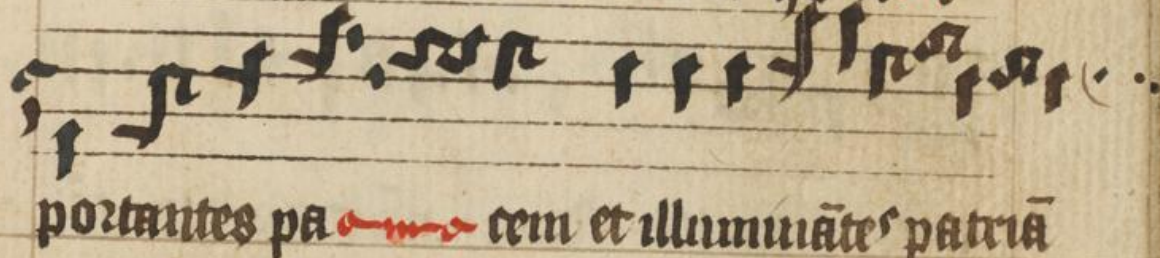 portantes pa cem et illuminātes patriā